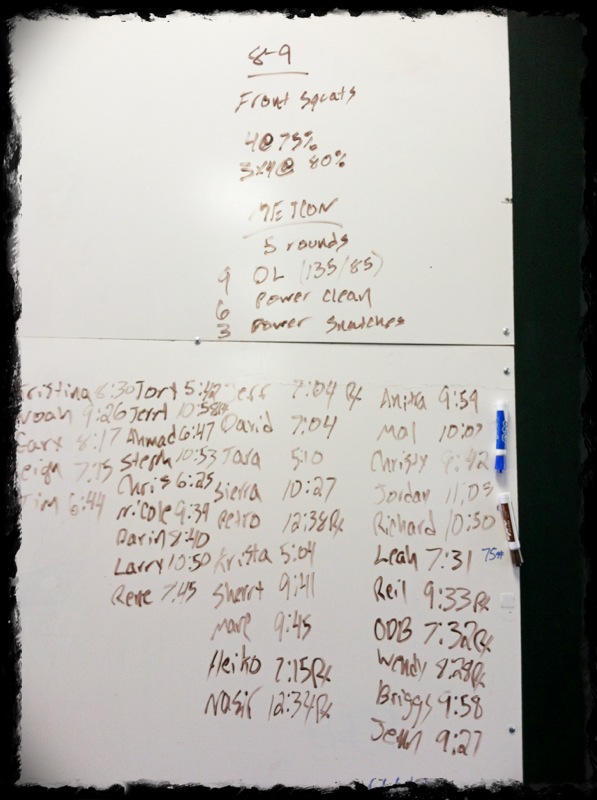 8-9
Front Squats
4@75%
3x4@ 80%
METCON
5 rounds
9 DL (135/85)
6 Power Clean
3 Power Snatches
Kristina 8:30
Noah 9:26
Gary 8:17
Leigh 7:15
Tim 6:44
Tory 5:42
Jerry 10:58 Rx
Ahmad 6:47
Steph 10:53
Chris 6:25
Nicole 9:39
Darin 8:40
Larry 10:50
Rene 7:45
Jeff 7:04 Rx
David 7:04
Tara 5:10
Sierra 10:27
Pedro 12:38 Rx
Krista 5:04
Sherri 9:41
Marc 9:45
Heiko 7:15 Rx
Nasir 12:34 Rx
Anita 9:59
Mal 10:07
Christy 9:42
Jordan 11:05
Richard 10:50
Leah 7:31 75#
Reil 9:33 Rx
ODB 7:32 Rx
Wendy 8:28 Rx
Briggs 9:58
Jenn 9:27